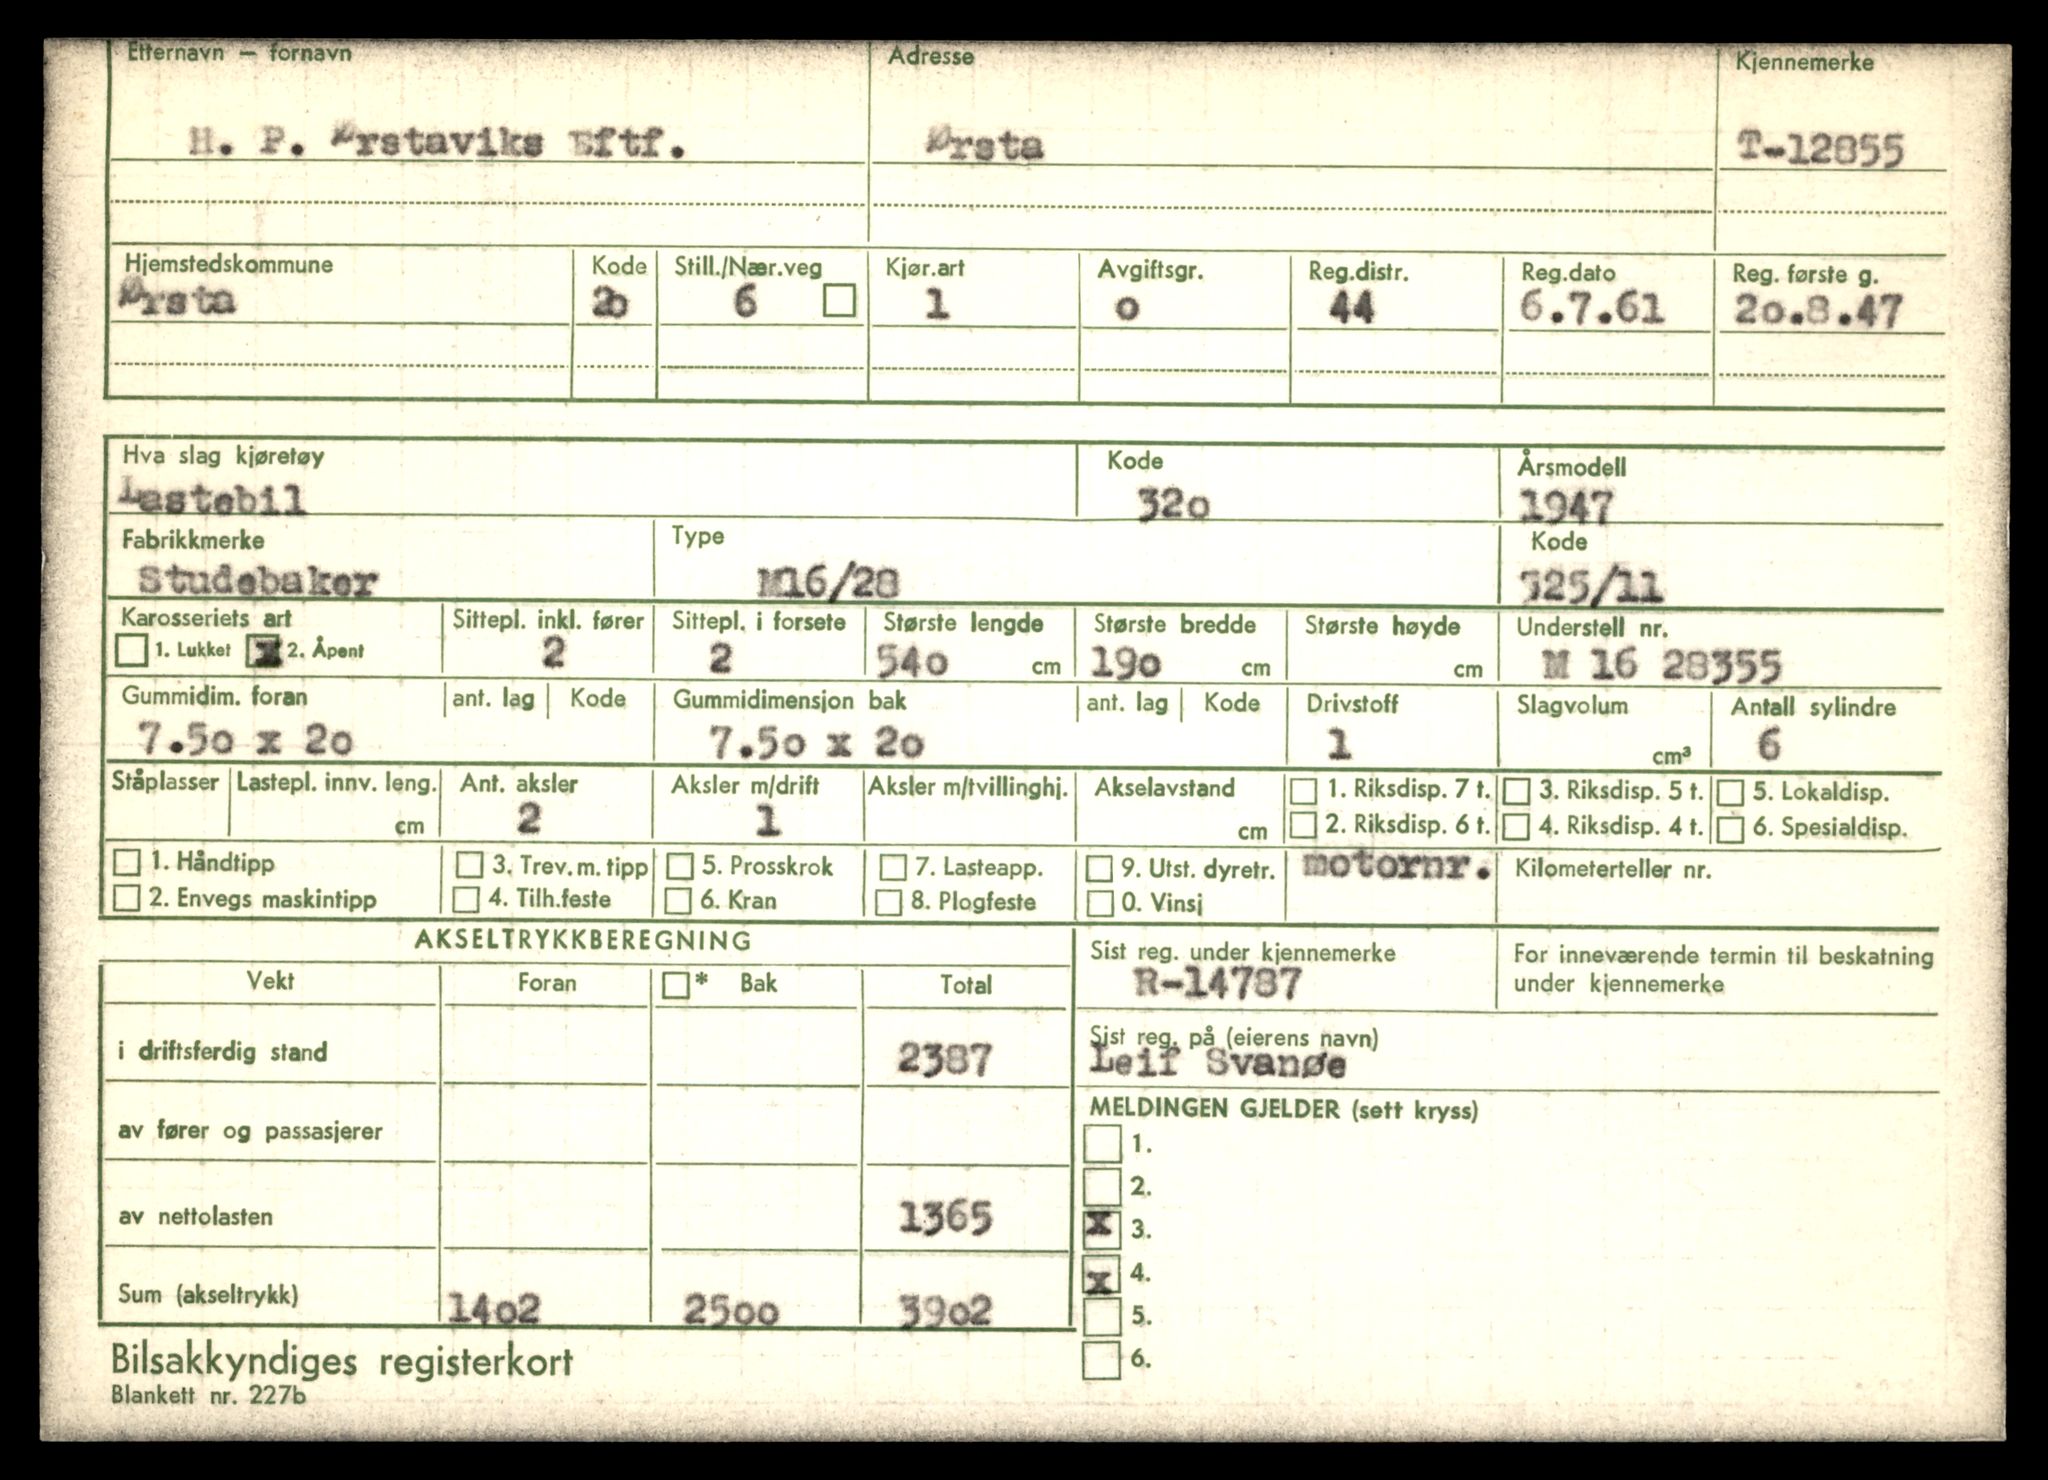 Etternavn — fornavn Adresse Kjennemerke
H. P. Ørstaviks Eftf. Ørsta T-12855
Hjemstedskommune Kode Still./Nær.veg Kjør.art Avgiftsgr. Reg.distr. Reg.dato Reg. første g.
Ørsta 20 6 1 o 44 6.7.61 2o.8.47
Hva slag kjøretøy Kode Årsmodell
Lastebil 32o 1947
Fabrikkmerke Type Kode
Studebaker M16/28 525/11
Karosseriets art Sittepl. inkl. fører Sittepl. i forsete Største lengde Største bredde Største høyde Understell nr.
1. Lukket x 2. Åpent 2 2 54o cm 19o cm cm M 16 28355
Gummidim. foran ant. lag Kode Gummidimensjon bak ant. lag Kode Drivstoff Slagvolum Antall sylindre
7.5o x 2o 7.5o x 2o 1 cm³ 6
Ståplasser Lastepl. innv. leng. Ant. aksler Aksler m/drift Aksler m/tvillinghj. Akselavstand 1. Riksdisp. 7 t. 3. Riksdisp. 5 t. 5. Lokaldisp.
cm 2 1 cm 2. Riksdisp. 6 t. 4. Riksdisp. 4 t. 6. Spesialdisp.
1. Håndtipp 3. Trev. m. tipp 5. Prosskrok 7. Lasteapp. 9. Utst. dyretr. motornr. Kilometerteller nr.
2. Envegs maskintipp 4. Tilh.feste 6. Kran 8. Plogfeste 0. Vinsj
AKSELTRYKKBEREGNING Sist reg. under kjennemerke For inneværende termin til beskatning
Vekt Foran * Bak Total R-14787 under kjennemerke
i driftsferdig stand 2387 Sist reg. på (eierens navn)
Leif Svanøe
av fører og passasjerer MELDINGEN GJELDER (sett kryss)
1.
2.
av nettolasten 1365 x 3.
x 4.
Sum (akseltrykk) 14o2 25oo 39o2 5.
6.
Bilsakkyndiges registerkort
Blankett nr. 227b